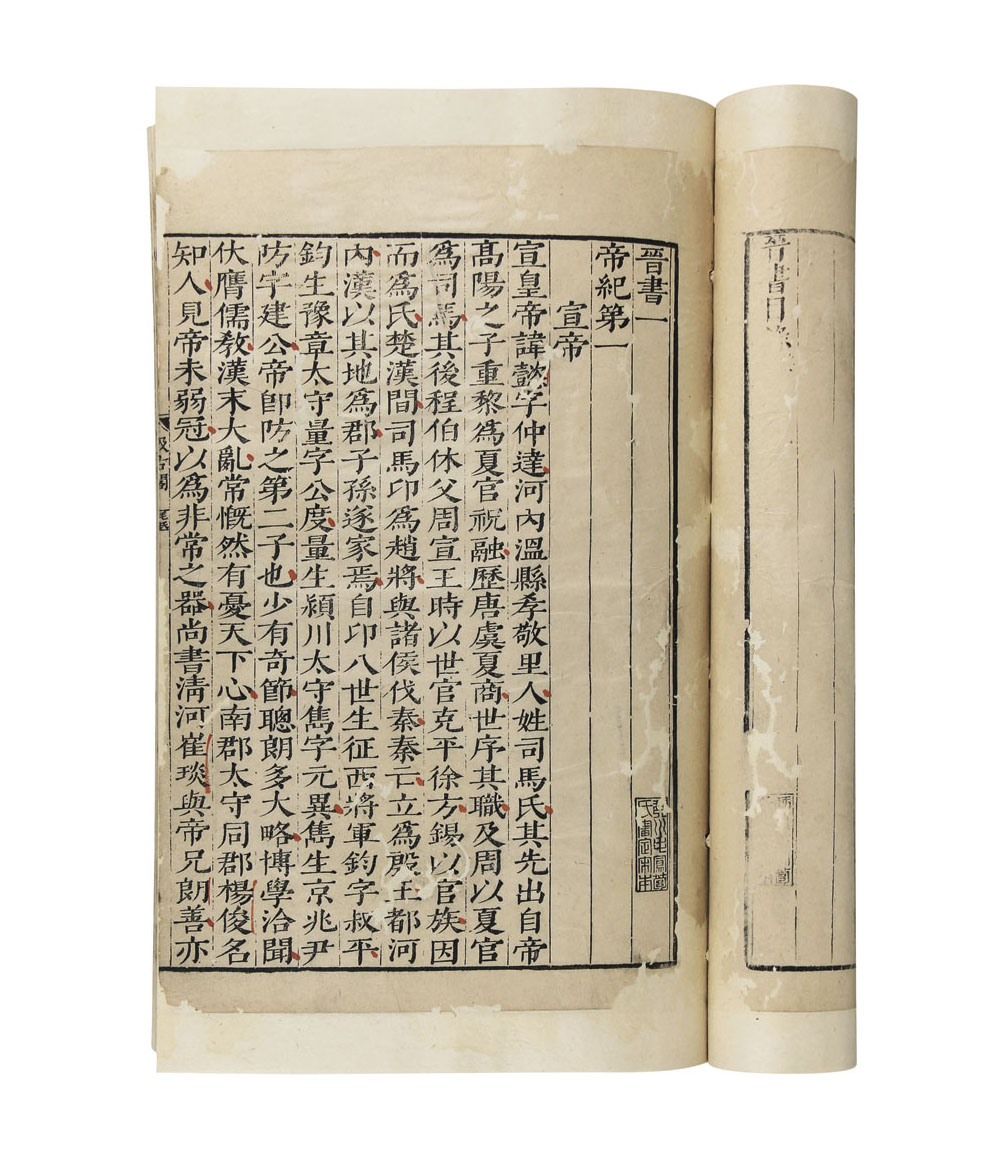 晉書目
晉書一
琴川毛鳳苞
氏審定宋本
帝紀第一
宣帝
宣皇帝諱懿字仲達河內溫縣孝敬里人姓司馬氏其先出自帝
髙陽之子重黎爲夏官祝融歷唐虞夏商世序其職及周以夏官
爲司馬其後程伯休父周宣王時以世官克平徐方錫以官族因
而爲氏楚漢間司馬印爲趙將與諸侯伐秦秦亡立爲殷王都河
內漢以其地爲郡子孫遂家焉自印八世生征西將軍鈞字叔平
鈞生豫章太守量字公度量生潁川太守雋字元異雋生京兆尹
防字建公帝卽防之第二子也少有奇節聰朗多大略博學洽聞
伏膺儒敎漢末大亂常慨然有憂天下心南郡太守同郡楊俊名
知人見帝未弱冠以爲非常之器尚書淸河崔琰與帝兄朗善亦
汲古閣
毛氏